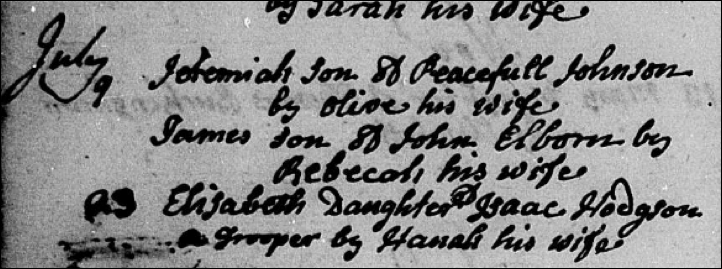 by Sarah his wife
July 9 Jeremiah son of Peacefull Johnson
by Olive his wife
James son of John Elborn by
Rebecah his wife
23 Elisabeth Daughter of Isaac Hodgson
a Trooper by Hanah his wife